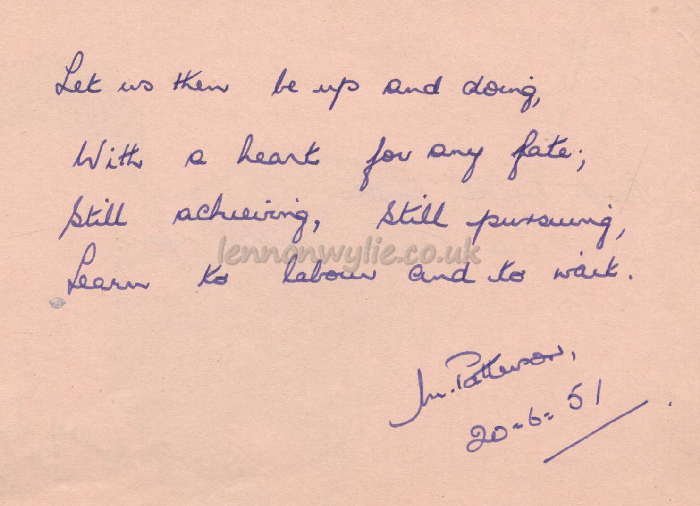 Let us then be up and doing,
With a heart for any fate;
Still achieving, still pursuing,
lennonwylie.co.uk
Learn to labour and to wait.
M. Patterson,
20-6-51